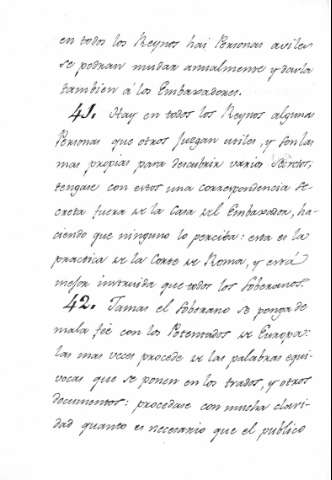 en todos los Reynos hai Personas aviles
se podran mudar anualmente y darla
tambien á los Embaxadores.
41. Hay en todos los Reynos algunas
Personas que otros juzgan utiles, y son las
mas propias para descubrir varios
tengase con estos una correspondencia se-
creta fuera de la Casa del Embaxador, ha-
ciendo que ninguno lo perciba: esta es la
practica de la Corte de Roma, y está
mejor instruida que todos los Soberanos.
42. Jamas el Soberano se ponga de
mala fée con los Potentados de Europa:
las mas veces procede de las palabras equi-
vocas que se ponen en los tratados, y otros
documentos: procedase con mucha clari-
dad quanto es necesario que el publico